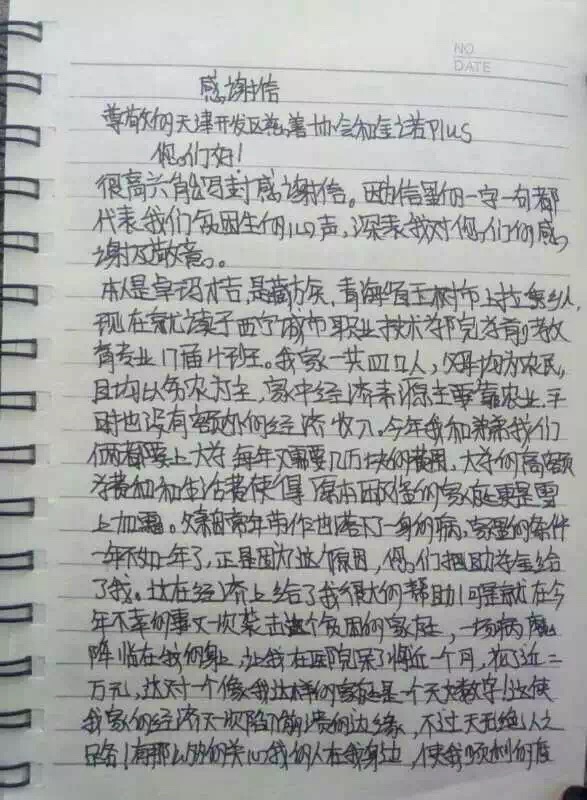 NO
DATE
感谢信
尊敬的天津开发区慈善协会和金诺Plus
您们好!
很高兴能写封感谢信。因为信里的一字一句都
代表我们贫困生的心声,深表我对您们的感
谢及敬意。
本人是卓玛才吉,是藏族,青海省玉树市上拉秀乡人,
现在就读于西宁城市职业技术学院学前教
育专业17届4班。我家一共四口人,父母均为农民,
且均以务农为主,家中经济来源主要靠农业.平
时也没有额外的经济收入。今年我和弟弟我们
俩都要上大学每年又需要几万块的费用,大学的高额
学费和和生活费使得原本困难的家庭更是雪
上加霜。父亲常年劳作也落下了一身的病,家里的条件
一年不如一年了,正是因为这个原因,您们把助学金给
了我。这在经济上给了我很大的帮助!可是就在今
年不幸的事又一次袭击这个贫困的家庭,一场病魔
降临在我的身上,让我在医院呆了将近一个月,花了近二
万元,这对一个像我这样的家庭是个天大数字!这使
我家的经济又一次陷了崩溃的边缘,不过天无绝人之
路!有那么多的关心我的人在我身边,使我顺利的度